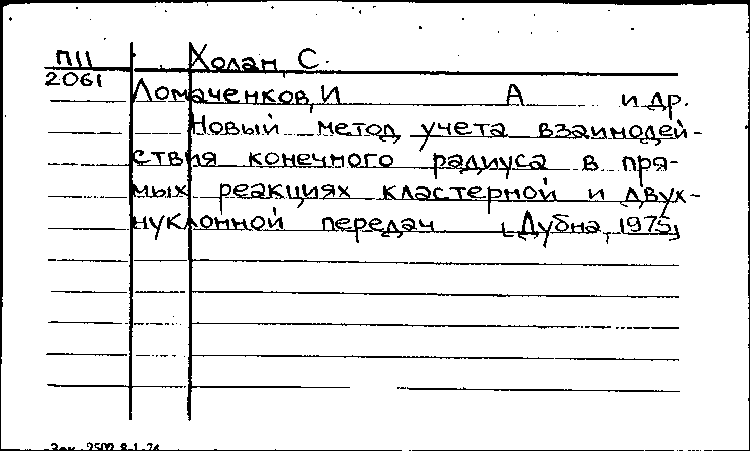 П11 Холан, С.
2061
Ломаченков, И А и др.
Новый метод учета взаимодей-
ствия конечного радиуса в пря-
мых реакциях кластерной и двух-
нуклонной передач [Дубна, 1975]
Зак. 2502 8-1-74